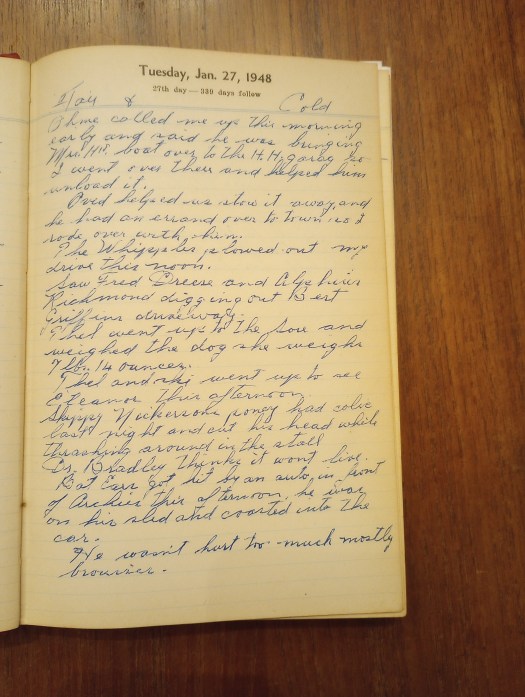 Tuesday, Jan. 27, 1948
27th day — 339 days follow
Fair & Cold
called me up this morning
early and said he was bringing
Mrs. H's. boat over to the H.H. garag so
I went over there and helped him
unload it.
Oved helped us stow it away and
he had an errand over to town so I
rode over with him.
The Whipples plowed out my
drive this noon.
Saw Fred Greese and Alpheus
Richmond digging out Bert
Griffins driveway.
Thel went up to the and
weighed the dog she weighs
7 lbs. 14 ounces.
Thel and ski went up to see
Eleanor this afternoon.
Skippy Nickersons poney had colic
last night and cut his head while
thrashing around in the stall
Dr. Bradley thinks it wont live.
Earr got hit by an auto in front
of Archies this afternoon, he was
on his sled and coasted into the
car.
He wasn't hurt too much mostly
bruises.